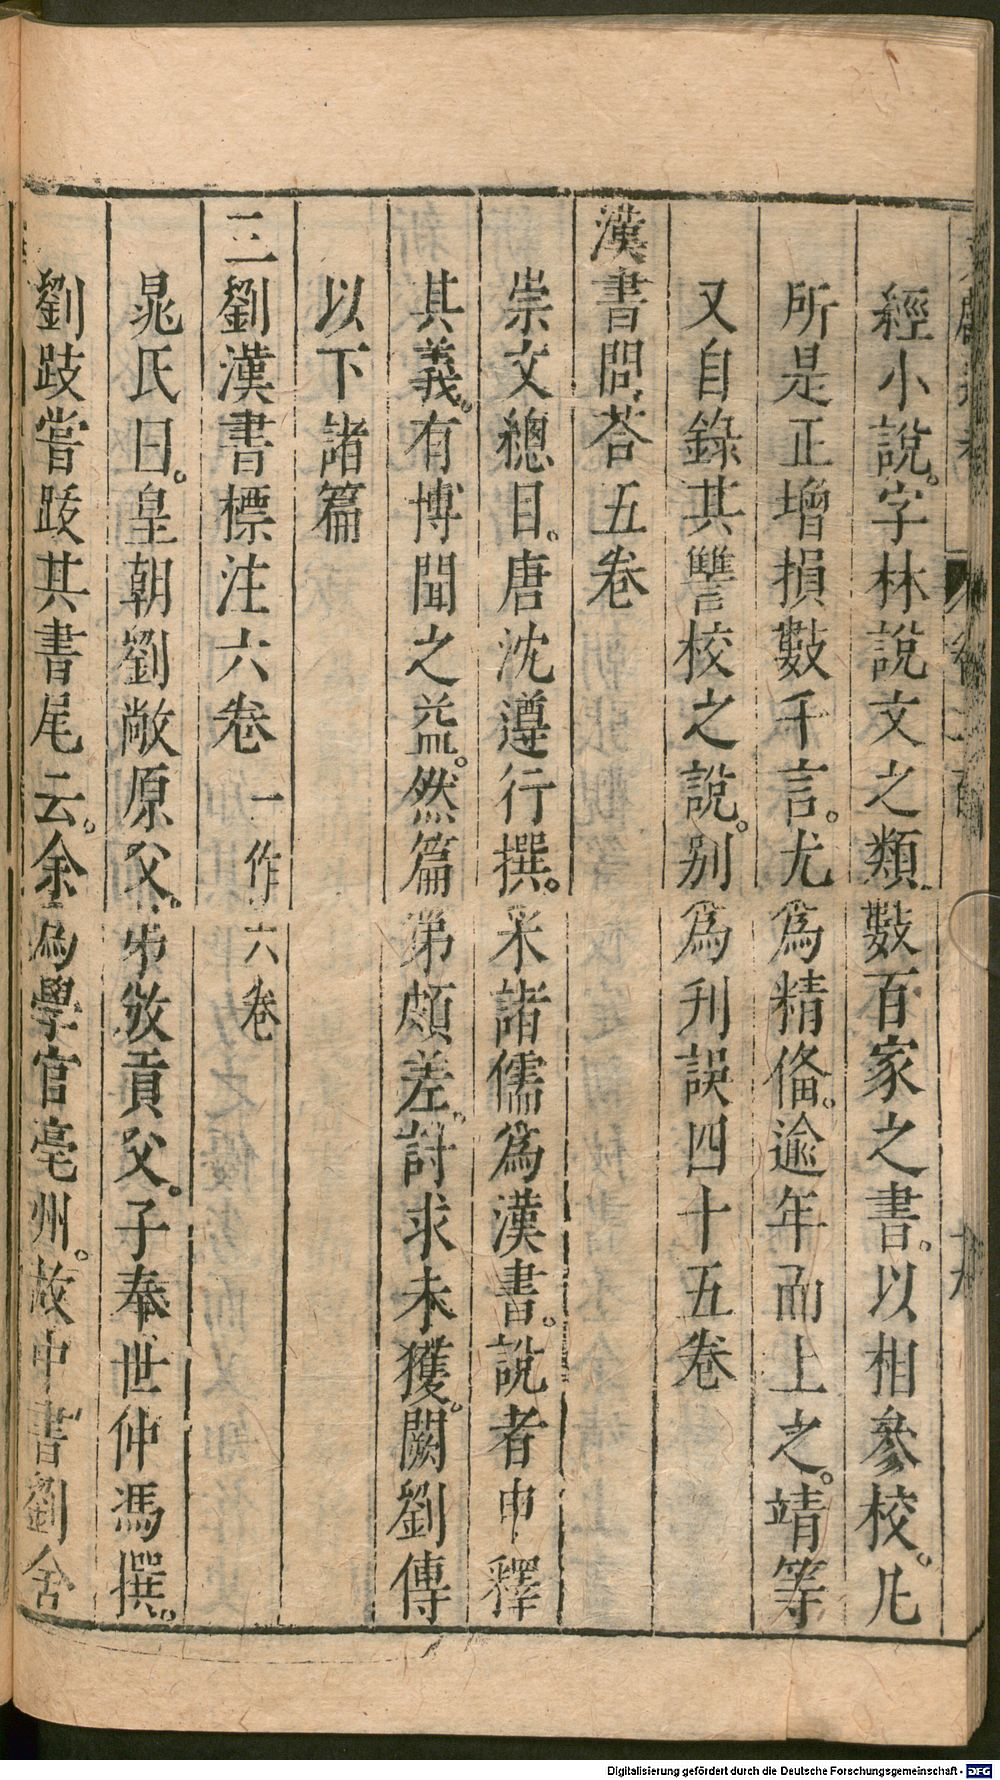 經小說。字林說文之類數百家之書。以相參校。凡
所是正增損數千言。尤為精俻。逾年而上之。靖等
又自錄其讐校之說。别為刋誤四十五卷
漢書問荅五卷
崇文總目。唐沈遵行撰。采諸儒為漢書。說者申釋
其義。有博聞之益。然篇第頗差。討求未獲。闕劉傳
以下諸篇
三劉漢書標注六卷 一作六卷
晁氏曰。皇朝劉敞原父。弟攽貢父。子奉世仲馮撰。
劉跂嘗跋其書尾云。余為學官亳州。故中書劉舍
Digitalisierung gefördert durch die Deutsche Forschungsgemeinschaft - DFG